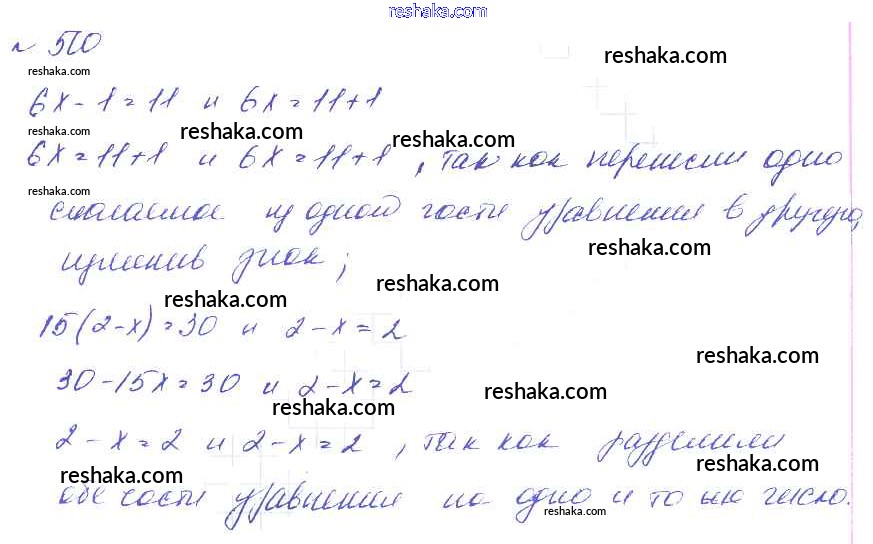 reshaka.com
№ 570
reshaka.com
reshaka.com
6x - 1 = 11 и 6x = 11+1
reshaka.com
reshaka.com
reshaka.com
6x = 11+1 и 6x = 11+1, так как перенесли одно
reshaka.com
слагаемое из одной части уравнения в другую,
reshaka.com
изменив знак;
reshaka.com
reshaka.com
15(2-x) = 30 и 2-x = 2
reshaka.com
30-15x = 30 и 2-x = 2
reshaka.com
reshaka.com
2-x = 2 и 2-x = 2, так как разделили
reshaka.com
reshaka.com
обе части уравнения на одно и то же число.
reshaka.com